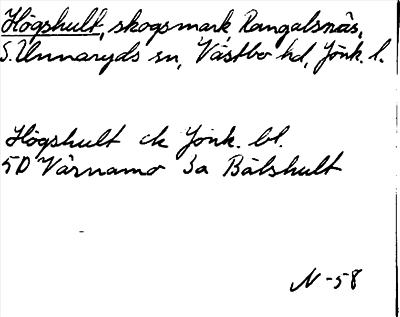 Högshult, skogsmark, Rangalsnäs,
S. Unnaryds sn, Västbo hd, Jönk. l.
Högshult ek Jönk. bl.
5D Värnamo 3a Bälshult
N -58